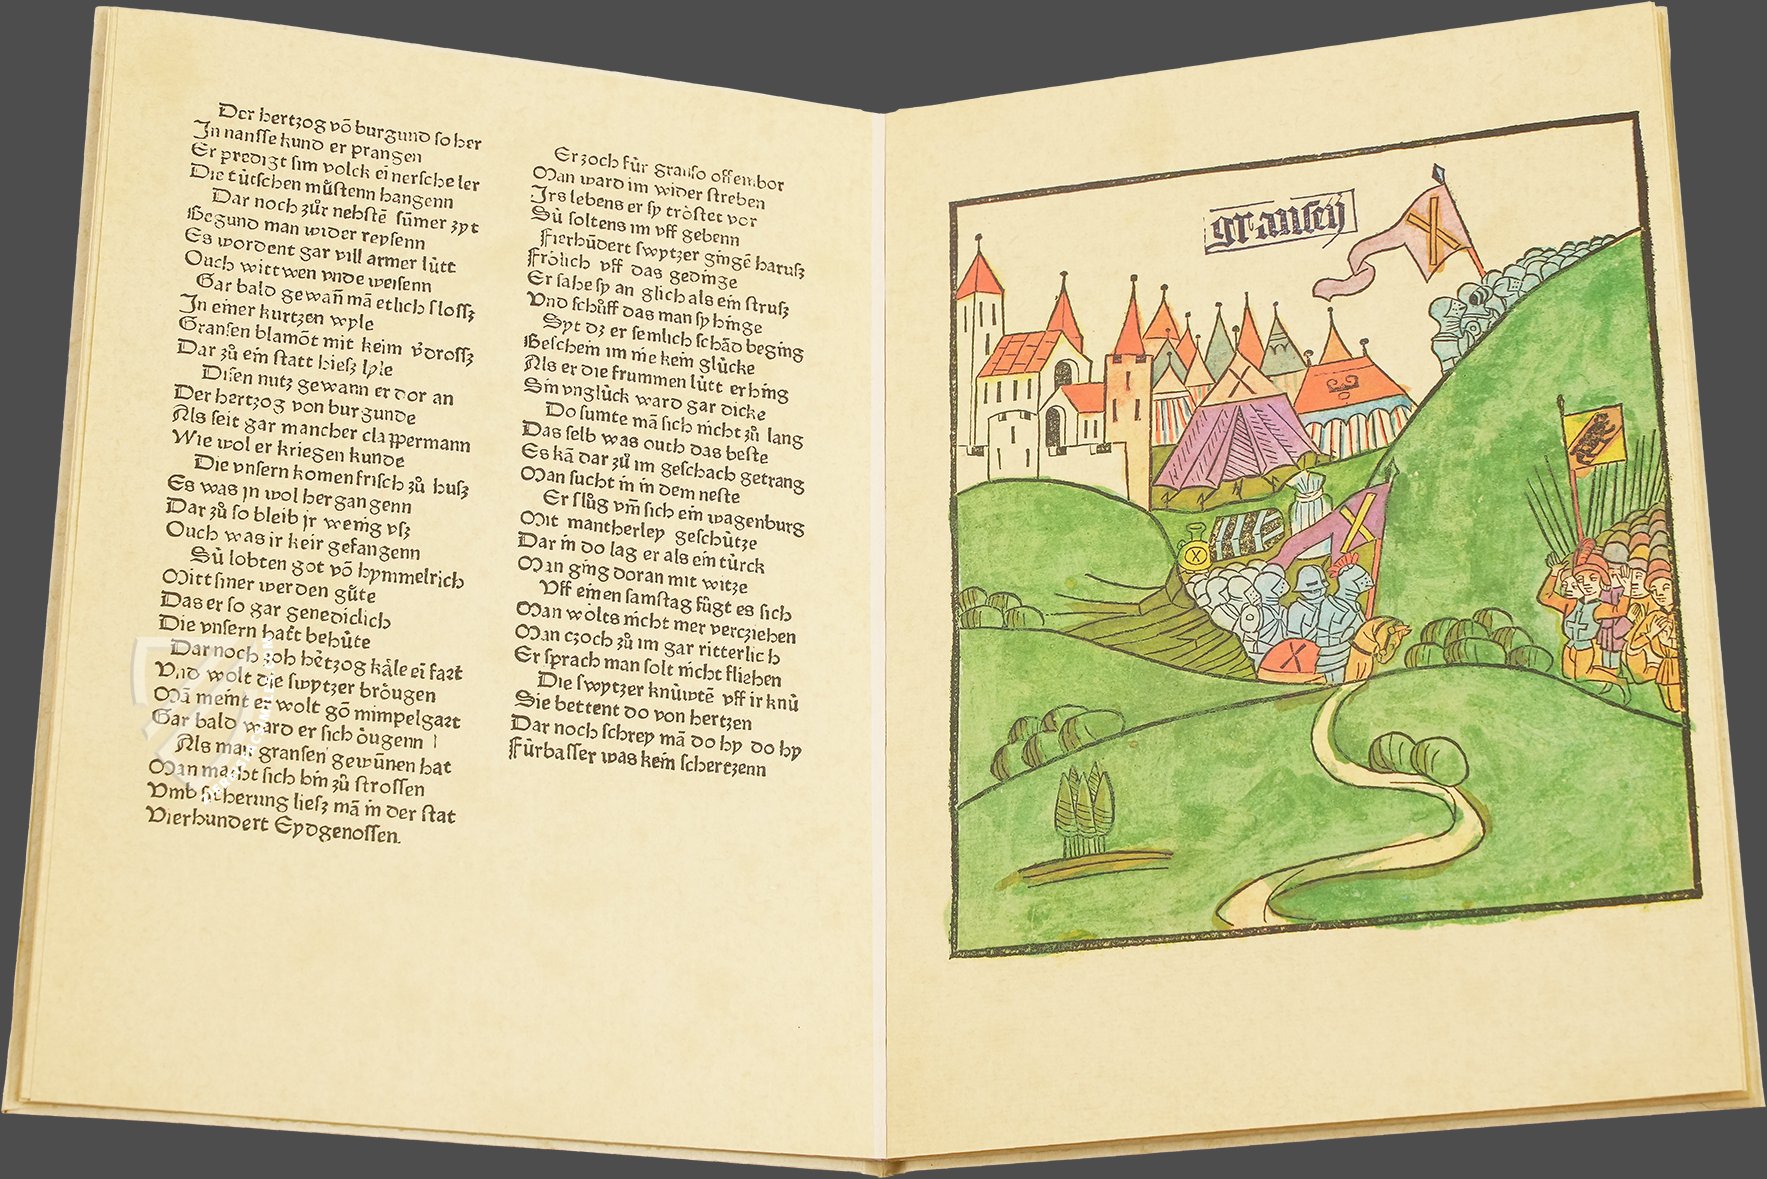 Der hertzog võ burgund so her
In nansse kund er prangen
Er predigt sim volck ein ersche ler
Die tütschen müstenn hangenn
Dar noch zůr nehstẽ sümer zyt
Begund man wider reysenn
Es wordent gar vill armer lütt
Ouch wittwen vnde weisenn
Gar bald gewañ mã etlich sloss
In einer kurtzen wyle
Gransen blamõt mit keim vdross
Dar zů ein statt hiesz lyle
Disen nutz gewann er dor an
Der hertzog von burgunde
Als seit gar mancher clappermann
Wie wol er kriegen kunde
Die vnsern komen frisch zů husz
Es was jn wol hergangenn
Dar zů so bleib jr wenig vsz
Ouch was ir keir gefangenn
Sů lobten got võ hymmelrich
Mitt siner werden gůte
Das er so gar genediclich
Die vnsern hatt behůte
Dar noch zoh hertzog kãle ei fart
Vnd wolt die swytzer brǒugen
Mã meint er wolt gõ mimpelgart
Gar bald ward er sich ǒugenn
Als man gransen gewũnen hat
Man macht sich hin zů strossen
Vmb sicherung liesz mã in der stat
Vierhundert Eydgenossen.
Er zoch für granso offembor
Man ward im wider streben
Irs lebens er sy tröstet vor
Sů soltens im vff gebenn
Fierhũdert swytzer gingẽ harusz
Frölich vff das gedinge
Er sahe sy an glich als ein strusz
Vnd schůff das man sy hinge
Syt dz er semlich schãd beging
Beschein im nie kein glücke
Als er die frummen lütt erhing
Sin vnglück ward gar dicke
Do sumte mã sich nicht zů lang
Das selb was ouch das beste
Es kã dar zů im geschach getrang
Man sucht in in dem neste
Er slůg vm̃ sich ein wagenburg
Mit mantherley geschütze
Dar in do lag er als ein türck
Man ging doran mit witze
Vff einen samstag fügt es sich
Man wolts nicht mer vercziehen
Man czoch zů im gar ritterlich
Er sprach man solt nicht fliehen
Die swytzer knüwtẽ vff ir knü
Sie bettent do von hertzen
Dar noch schrey mã do hy do hy
Fürbasser was kein schertzenn
gransey